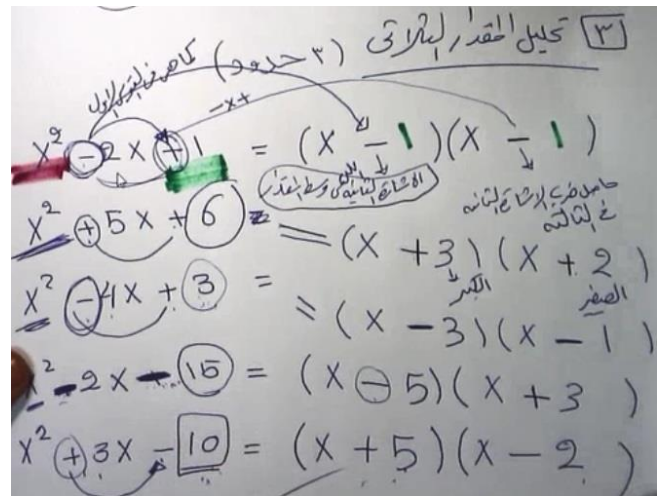 [٣] تحليل المقدار الثلاثى (٣ حدود)
كما هى فى القوس الاول
- x +
x² - 2x + 1 = (x - 1)(x - 1)
الاشارة الثانية فى وسط المقدار
حاصل ضرب الاشارة الثانيه
فى الثالثه
x² + 5x + 6 = (x + 3)(x + 2)
الكبير الصغير
x² - 4x + 3 = = (x - 3)(x - 1)
x² - 2x - 15 = (x - 5)(x + 3)
x² + 3x - 10 = (x + 5)(x - 2)